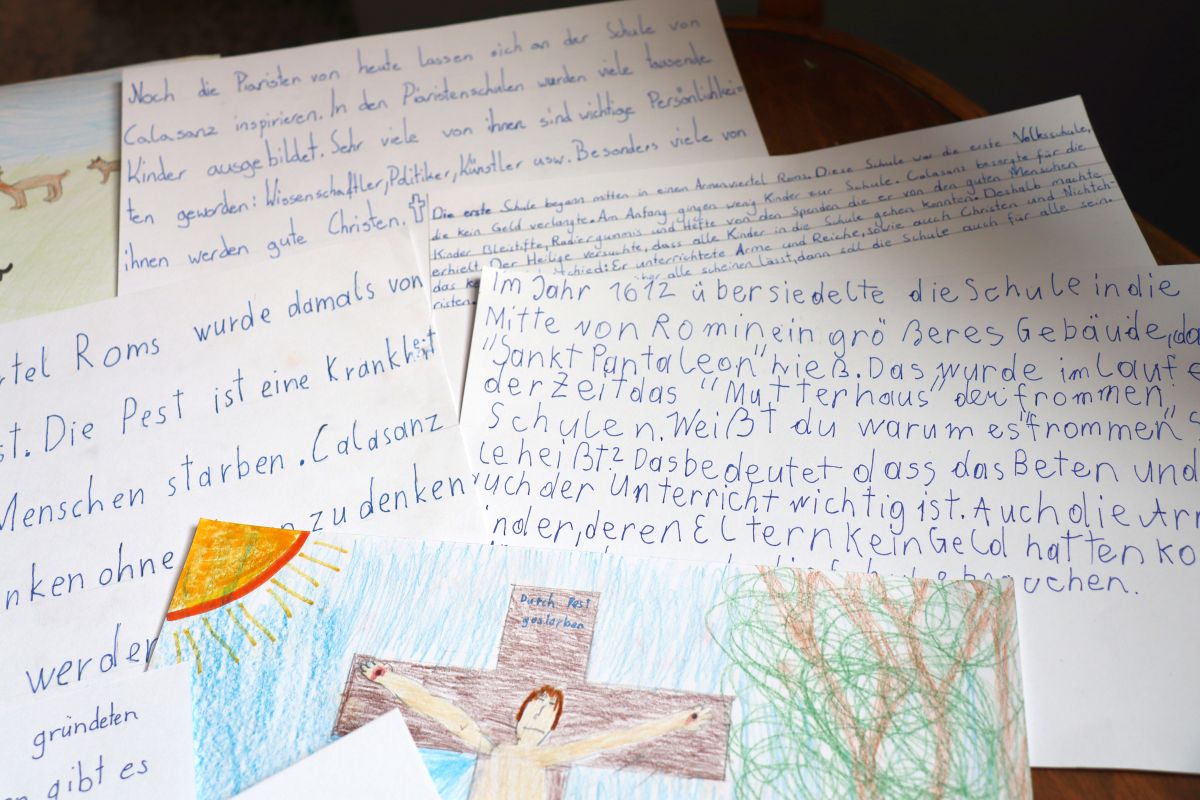 Noch die Piaristen von heute lassen sich an der Schule von
Calasanz inspirieren. In den Piaristenschulen wurden viele tausende
Kinder ausgebildet. Sehr viele von ihnen sind wichtige Persönlichkei=
ten geworden: Wissenschaftler, Politiker, Künstler usw. Besonders viele von
ihnen werden gute Christen.
Die erste Schule begann mitten in einen Armenviertel Roms. Diese Schule war die erste Volksschule,
die kein Geld verlangte. Am Anfang gingen wenig Kinder zur Schule. Calasanz besorgte für die
Kinder Bleistifte, Radiergummis und Hefte von den Spenden die er von den guten Menschen
erhielt. Der Heilige versuchte, dass alle Kinder in die Schule gehen konnten. Deshalb machte
das schied: Er unterrichtete Arme und Reiche, sowie auch Christen und Nichtch-
risten. über alle scheinen lässt, dann soll die Schule auch für alle sein.
Im Jahr 1612 übersiedelte die Schule in die
Mitte von Rom in ein größeres Gebäude, da
"Sankt Pantaleon" hieß. Das wurde im Laufe
der Zeit das "Mutterhaus" der frommen
Schulen. Weißt du warum es "frommen"
le heißt? Das bedeutet dass das Beten und
uch der Unterricht wichtig ist. Auch die Arm
inder, deren Eltern kein Geld hatten ko
suchen.
rtel Roms wurde damals von
st. Die Pest ist eine Krankheit
Menschen starben. Calasanz
n zu denken
nken ohne
werden
gründeten
gibt es
Durch Pest
gestorben